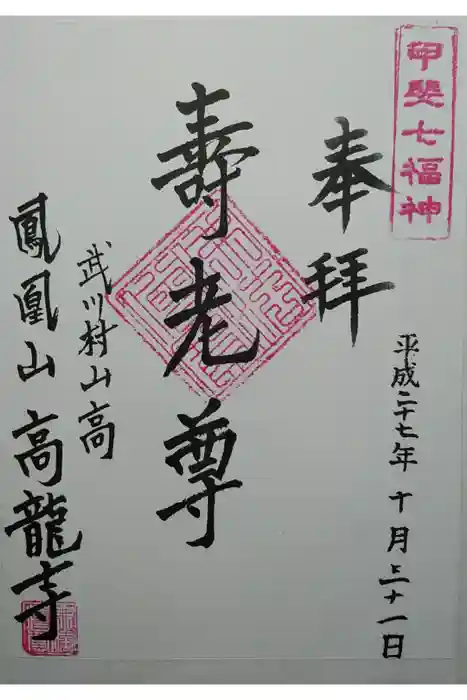 甲斐七福神
奉拝
平成二十七年十月三十一日
壽老尊
武川村山高
鳳凰山高龍寺